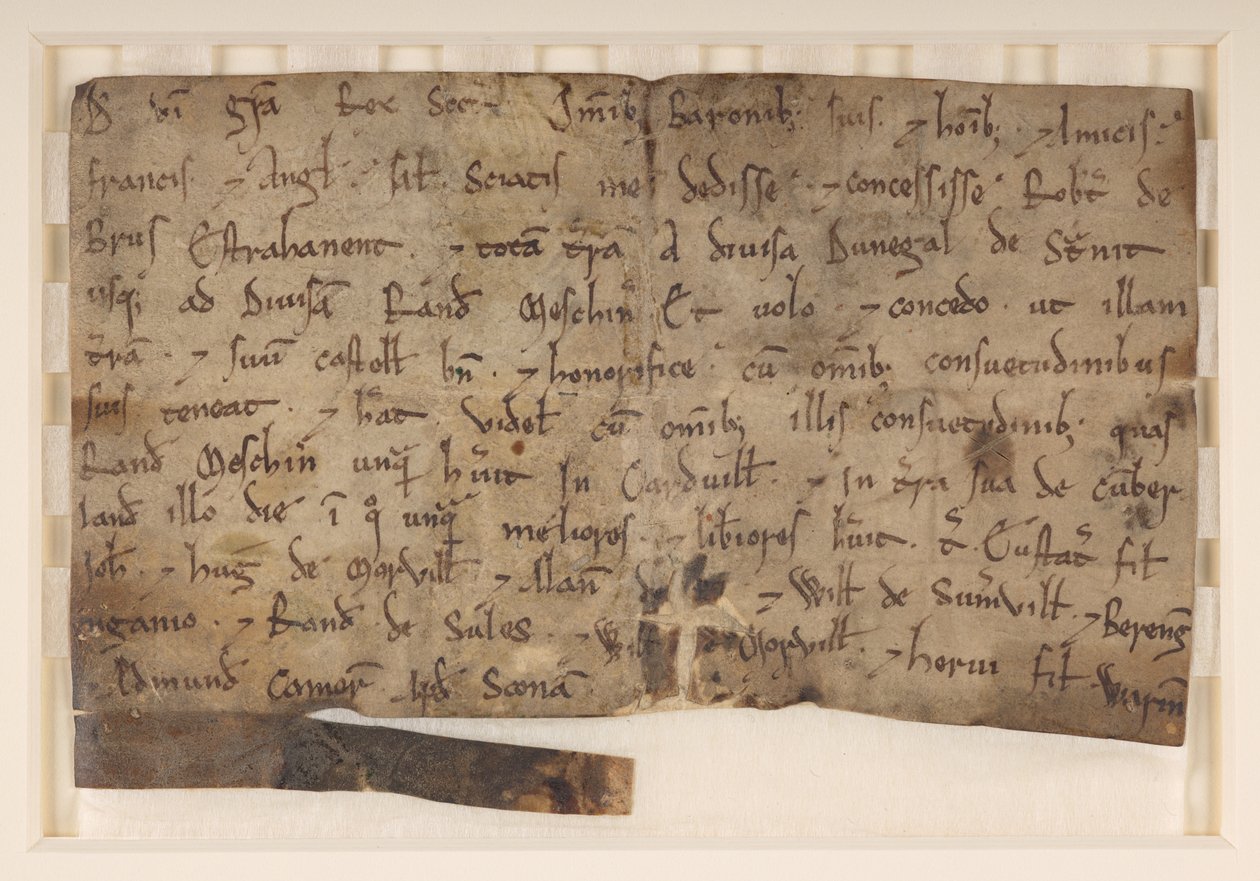 D dī grā Rex Scott Omib; Baronib; suis. ⁊ hoīb; ⁊ Amicis.
francis ⁊ Angł. sał. Sciatis me dedisse ⁊ concessisse Robt de
Brus Estrahanent. ⁊ totā t̄rā A divisa Dunegal de St̄nit
usq; ad Divisā Rand Meschin Et volo ⁊ concedo ut illam
t̄rā ⁊ suū castełł bn̄ ⁊ honorifice cū om̄ib; consuetudinibus
suis teneat. ⁊ hat videł cū om̄ib; illis consuetudinib; quas
Rand Meschin unq̄ h̄uit In Carduiłł. ⁊ In t̄ra sua de cūber
land illo die ī q̊ unq̄ meliores ⁊ lib̄iores h̄uit. T̄. Eustat fił
Joh̄. ⁊ hug de Morviłł ⁊ Alan de ⁊ Wiłł de Sum̄viłł. ⁊ Bereng
engaino. ⁊ Rand de Sules. ⁊ Wiłł de Morviłł. ⁊ herui fił Warin
⁊ Ædmund Camer̄. Apd Sconā